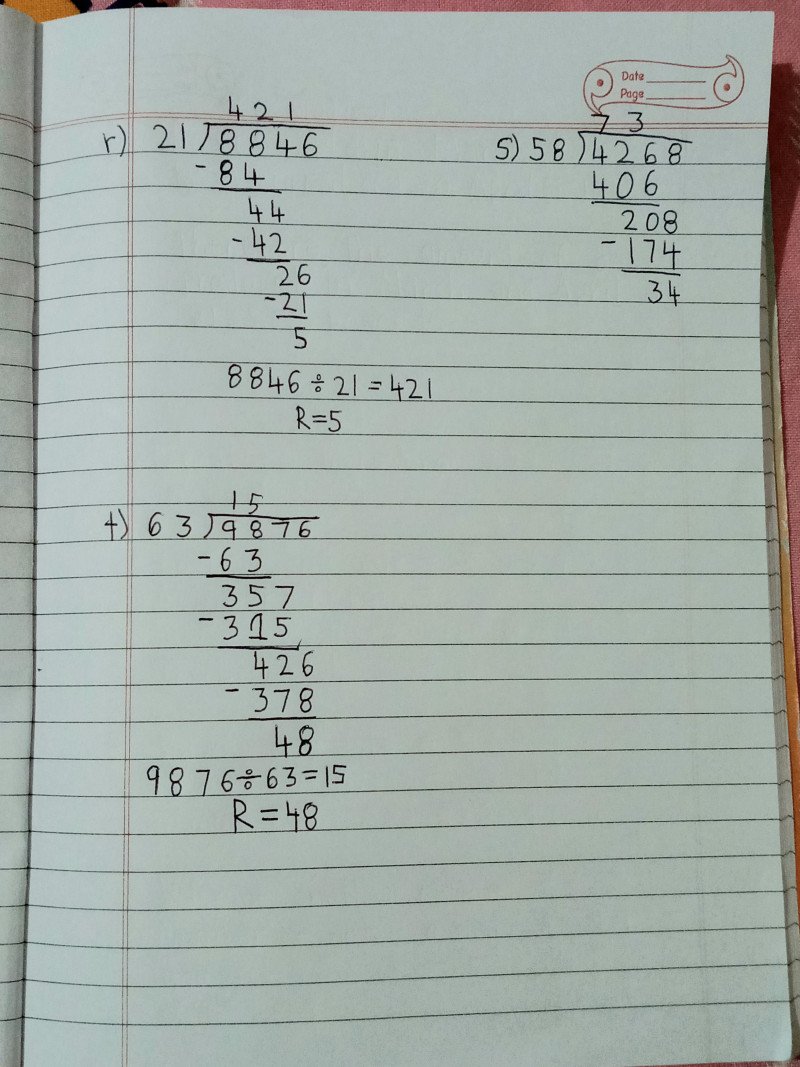 Date
Page
421
r) 21)8846
-84
44
-42
26
-21
5
8846÷21=421
R=5
73
S) 58)4268
406
208
-174
34
15
t) 63)9876
-63
357
-315
426
-378
48
9876÷63=15
R=48